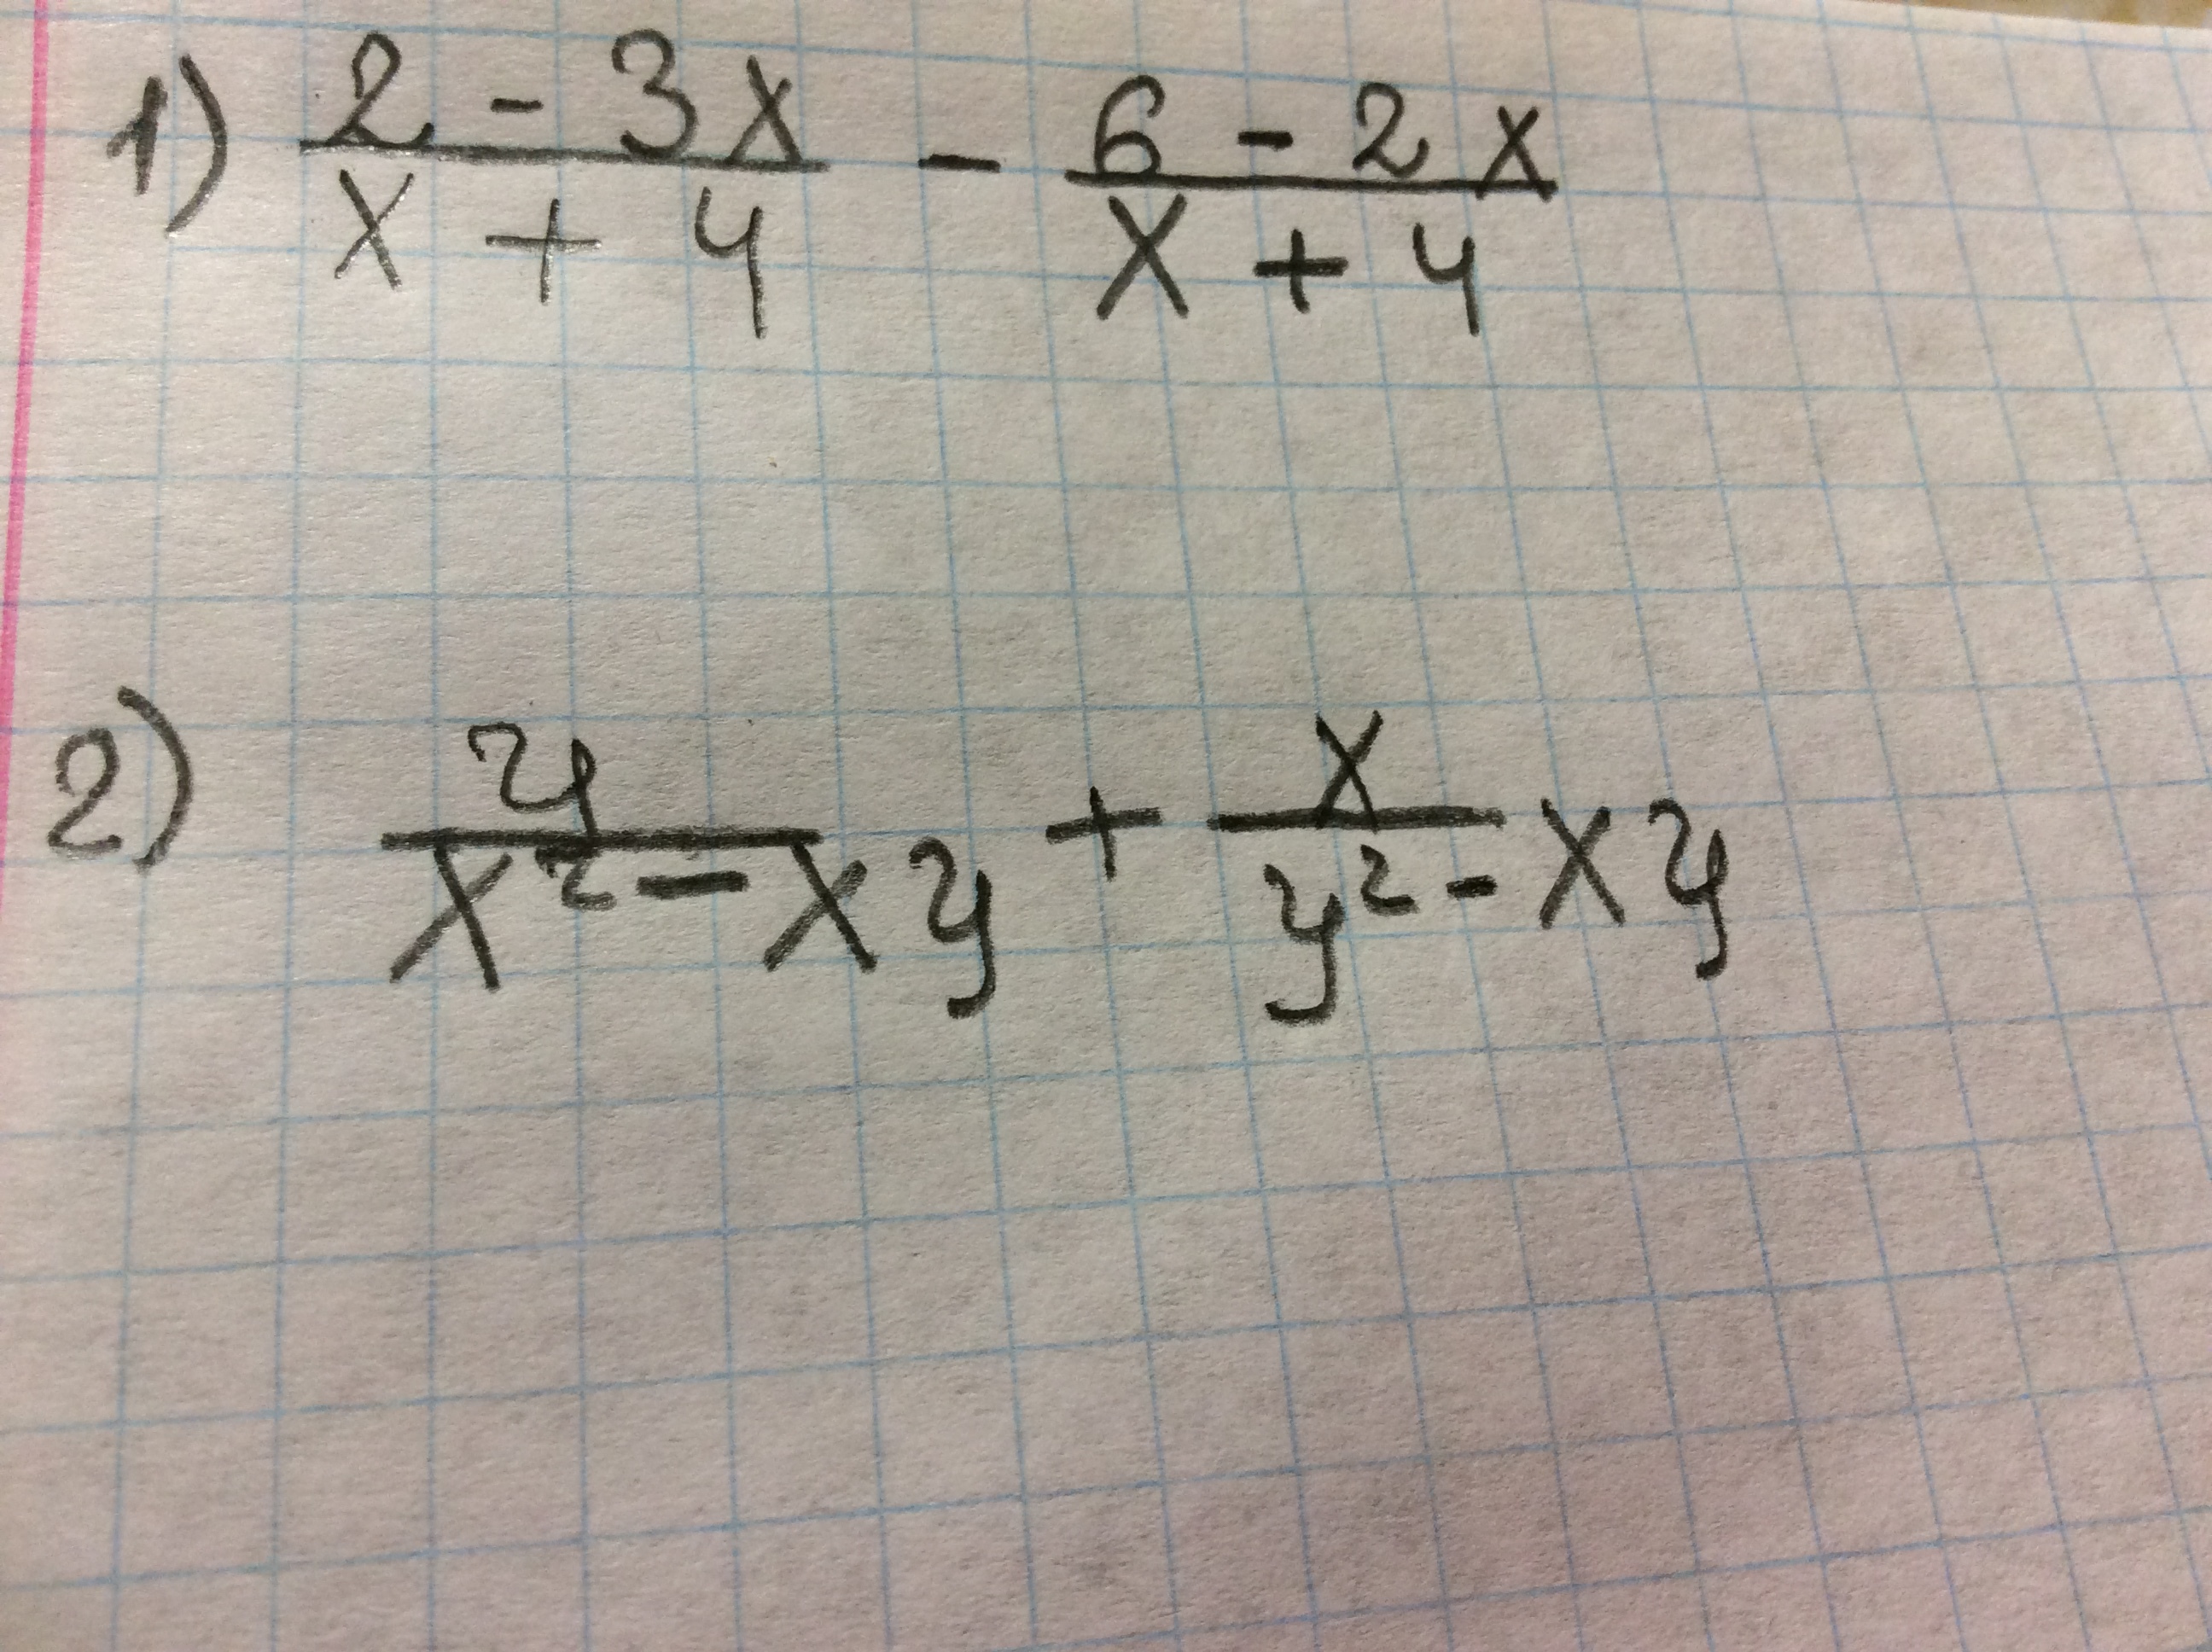 1) 2 - 3x / x + 4 - 6 - 2x / x + 4
2) y / x² - xy + x / y² - xy